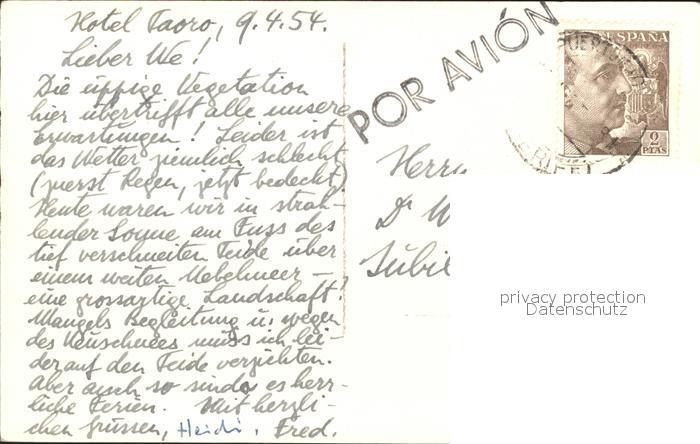 Hotel Taoro, 9.4.54.
Lieber We!
Die üppige Vegetation
hier übertrifft alle unsere
Erwartungen! Leider ist
das Wetter ziemlich schlecht
(zuerst Regen, jetzt bedeckt).
Heute waren wir in strah-
lender Sonne am Fuss des
tief verschneiten Teide über
einem weiten Nebelmeer –
eine grossartige Landschaft!
Mangels Begleitung u. wegen
des Neuschnees muss ich lei-
der auf den Teide verzichten.
Aber auch so sind es herr-
liche Ferien. Mit herzli-
chen Grüssen, Heidi. Fred.
POR AVIÓN
ESPAÑA
2
PTAS
Herrn
Dr W
privacy protection
Datenschutz